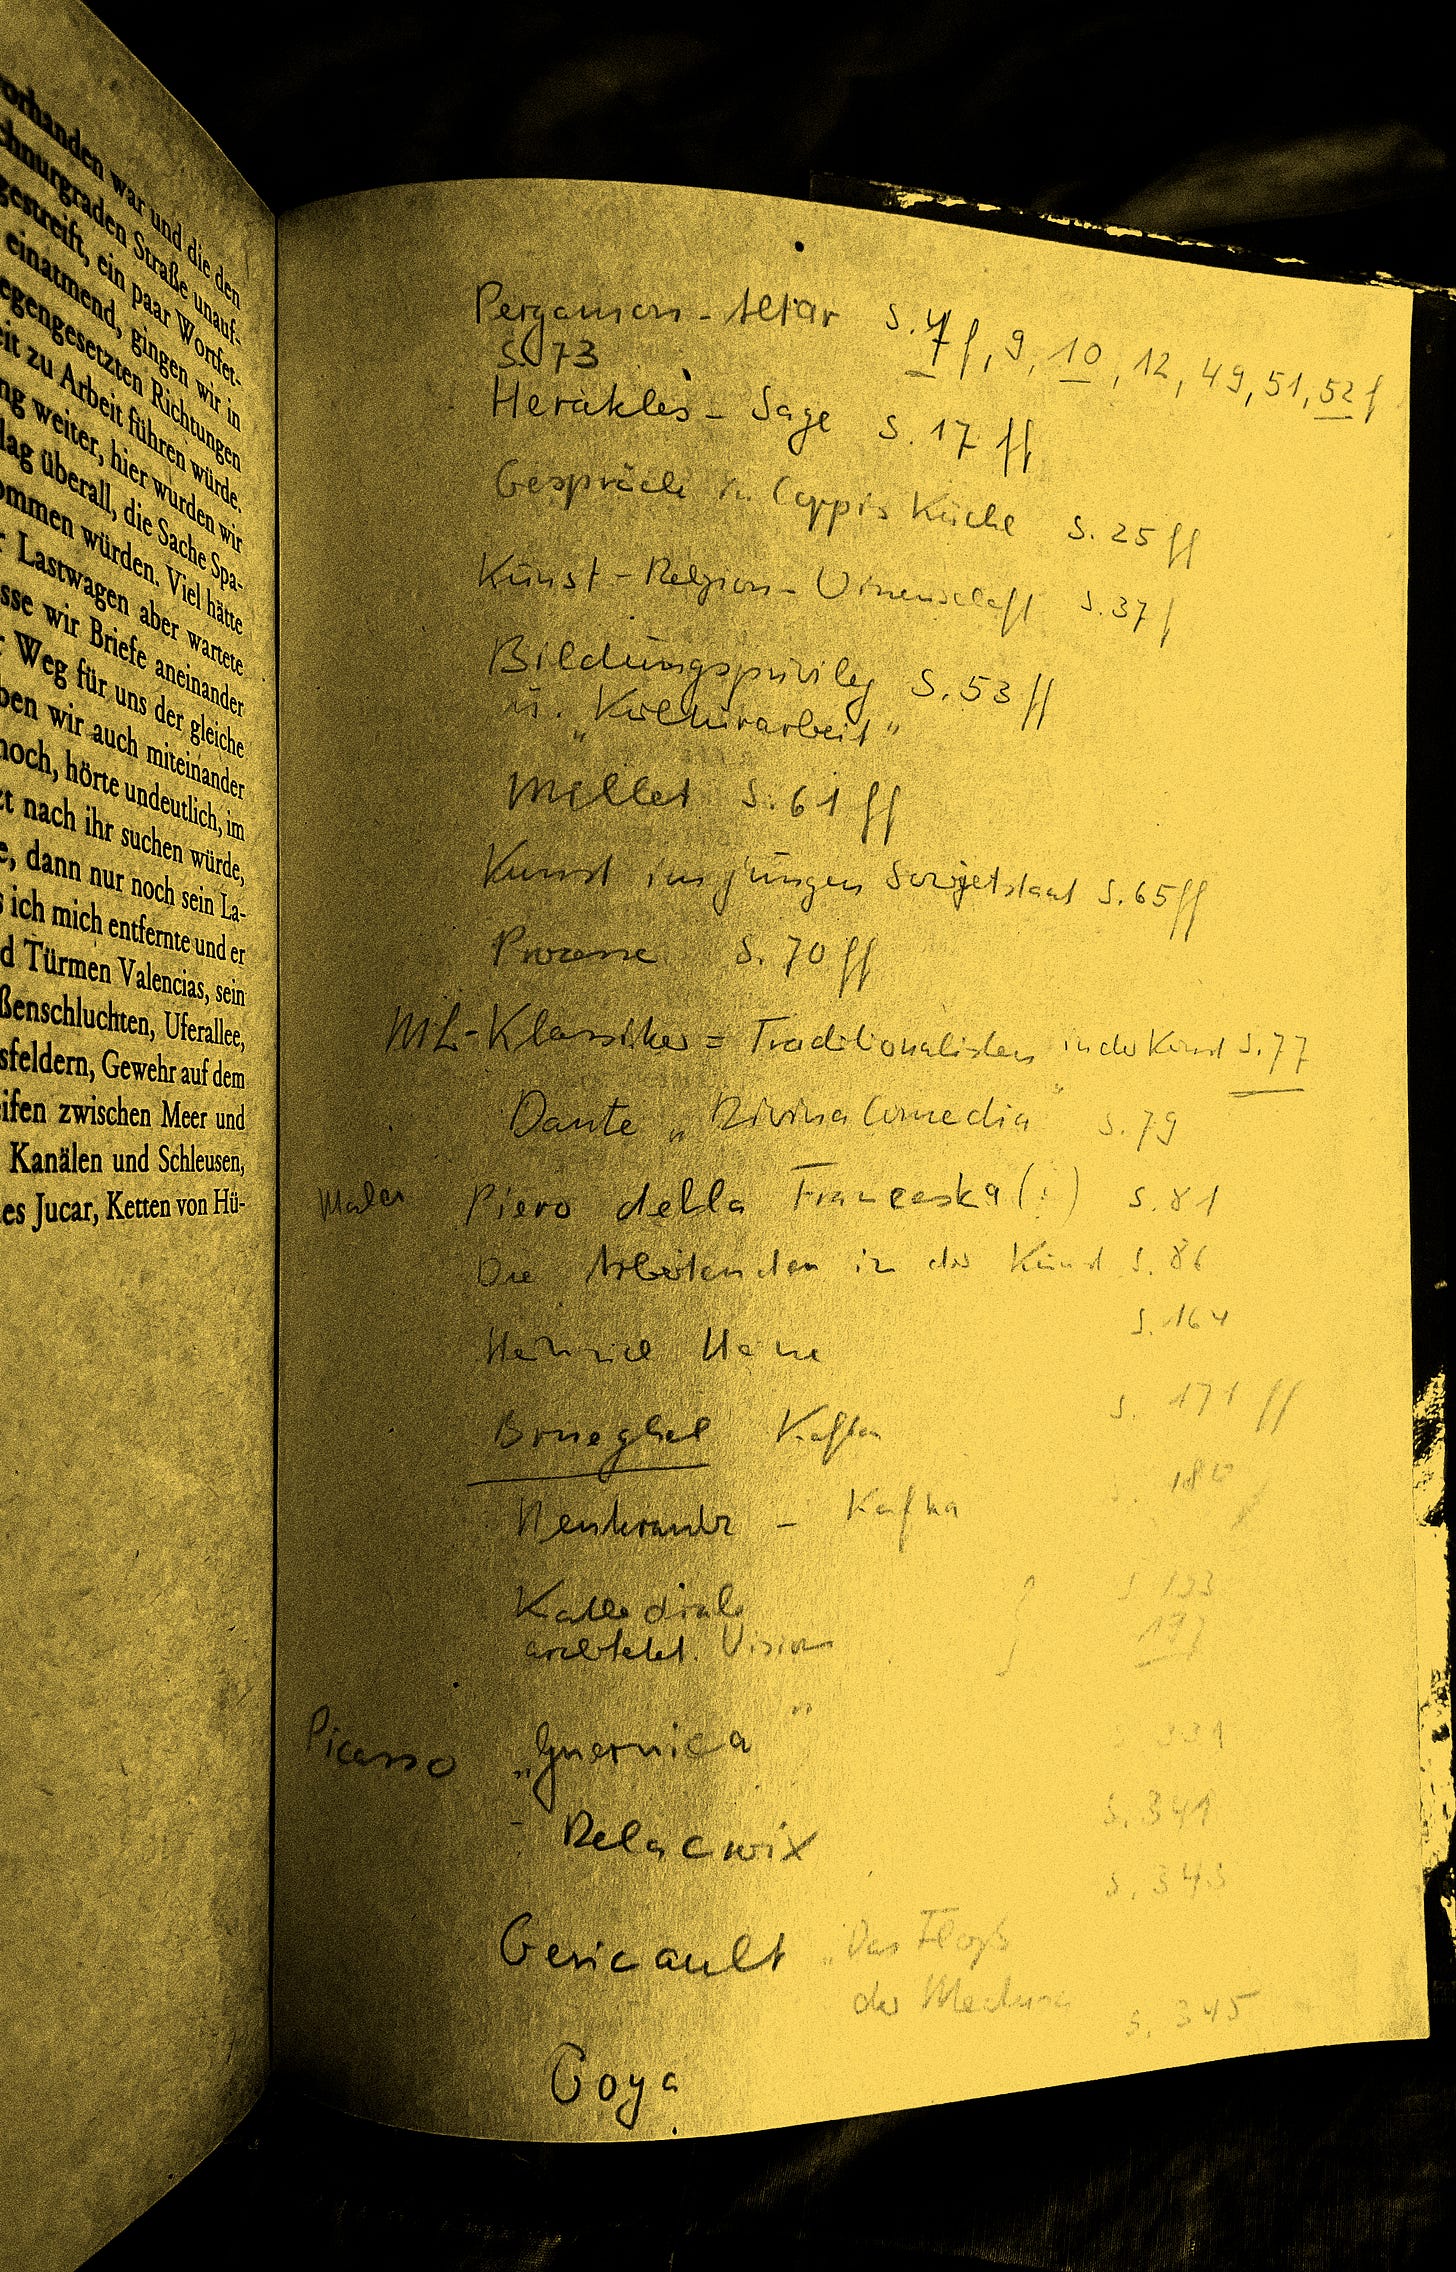 vorhanden war und die den
schnurgraden Straße unauf-
gestreift, ein paar Wortfet-
einatmend, gingen wir in
egengesetzten Richtungen
eit zu Arbeit führen würde.
ng weiter, hier wurden wir
lag überall, die Sache Spa-
ommen würden. Viel hätte
r Lastwagen aber wartete
sse wir Briefe aneinander
r Weg für uns der gleiche
ben wir auch miteinander
noch, hörte undeutlich, im
zt nach ihr suchen würde,
e, dann nur noch sein La-
s ich mich entfernte und er
d Türmen Valencias, sein
ßenschluchten, Uferallee,
sfeldern, Gewehr auf dem
eifen zwischen Meer und
Kanälen und Schleusen,
es Jucar, Ketten von Hü-
Pergamon-Altar S. 7 f, 9, 10, 12, 49, 51, 52 f
S. 73
Herakles-Sage S. 17 ff
Gespräch in Coppis Küche S. 25 ff
Kunst-Religion-Wissenschaft S. 37 f
Bildungsprivileg S. 53 ff
u. "Kulturarbeit"
Millet S. 61 ff
Kunst im jungen Sowjetstaat S. 65 ff
Prozesse S. 70 ff
ML-Klassiker = Traditionalisten in der Kunst S. 77
Dante „Divina Comedia" S. 79
Maler Piero della Franceska (!) S. 81
Die Arbeitenden in der Kunst S. 86
Heinrich Heine S. 164
Brueghel Kafka S. 171 ff
Rembrandt - Kafka 180
Kathedrale S. 193
architekt. Vision 197
Picasso „Guernica" 331
Delacroix S. 341
S. 343
Gericault „Das Floß
der Medusa S. 345
Goya